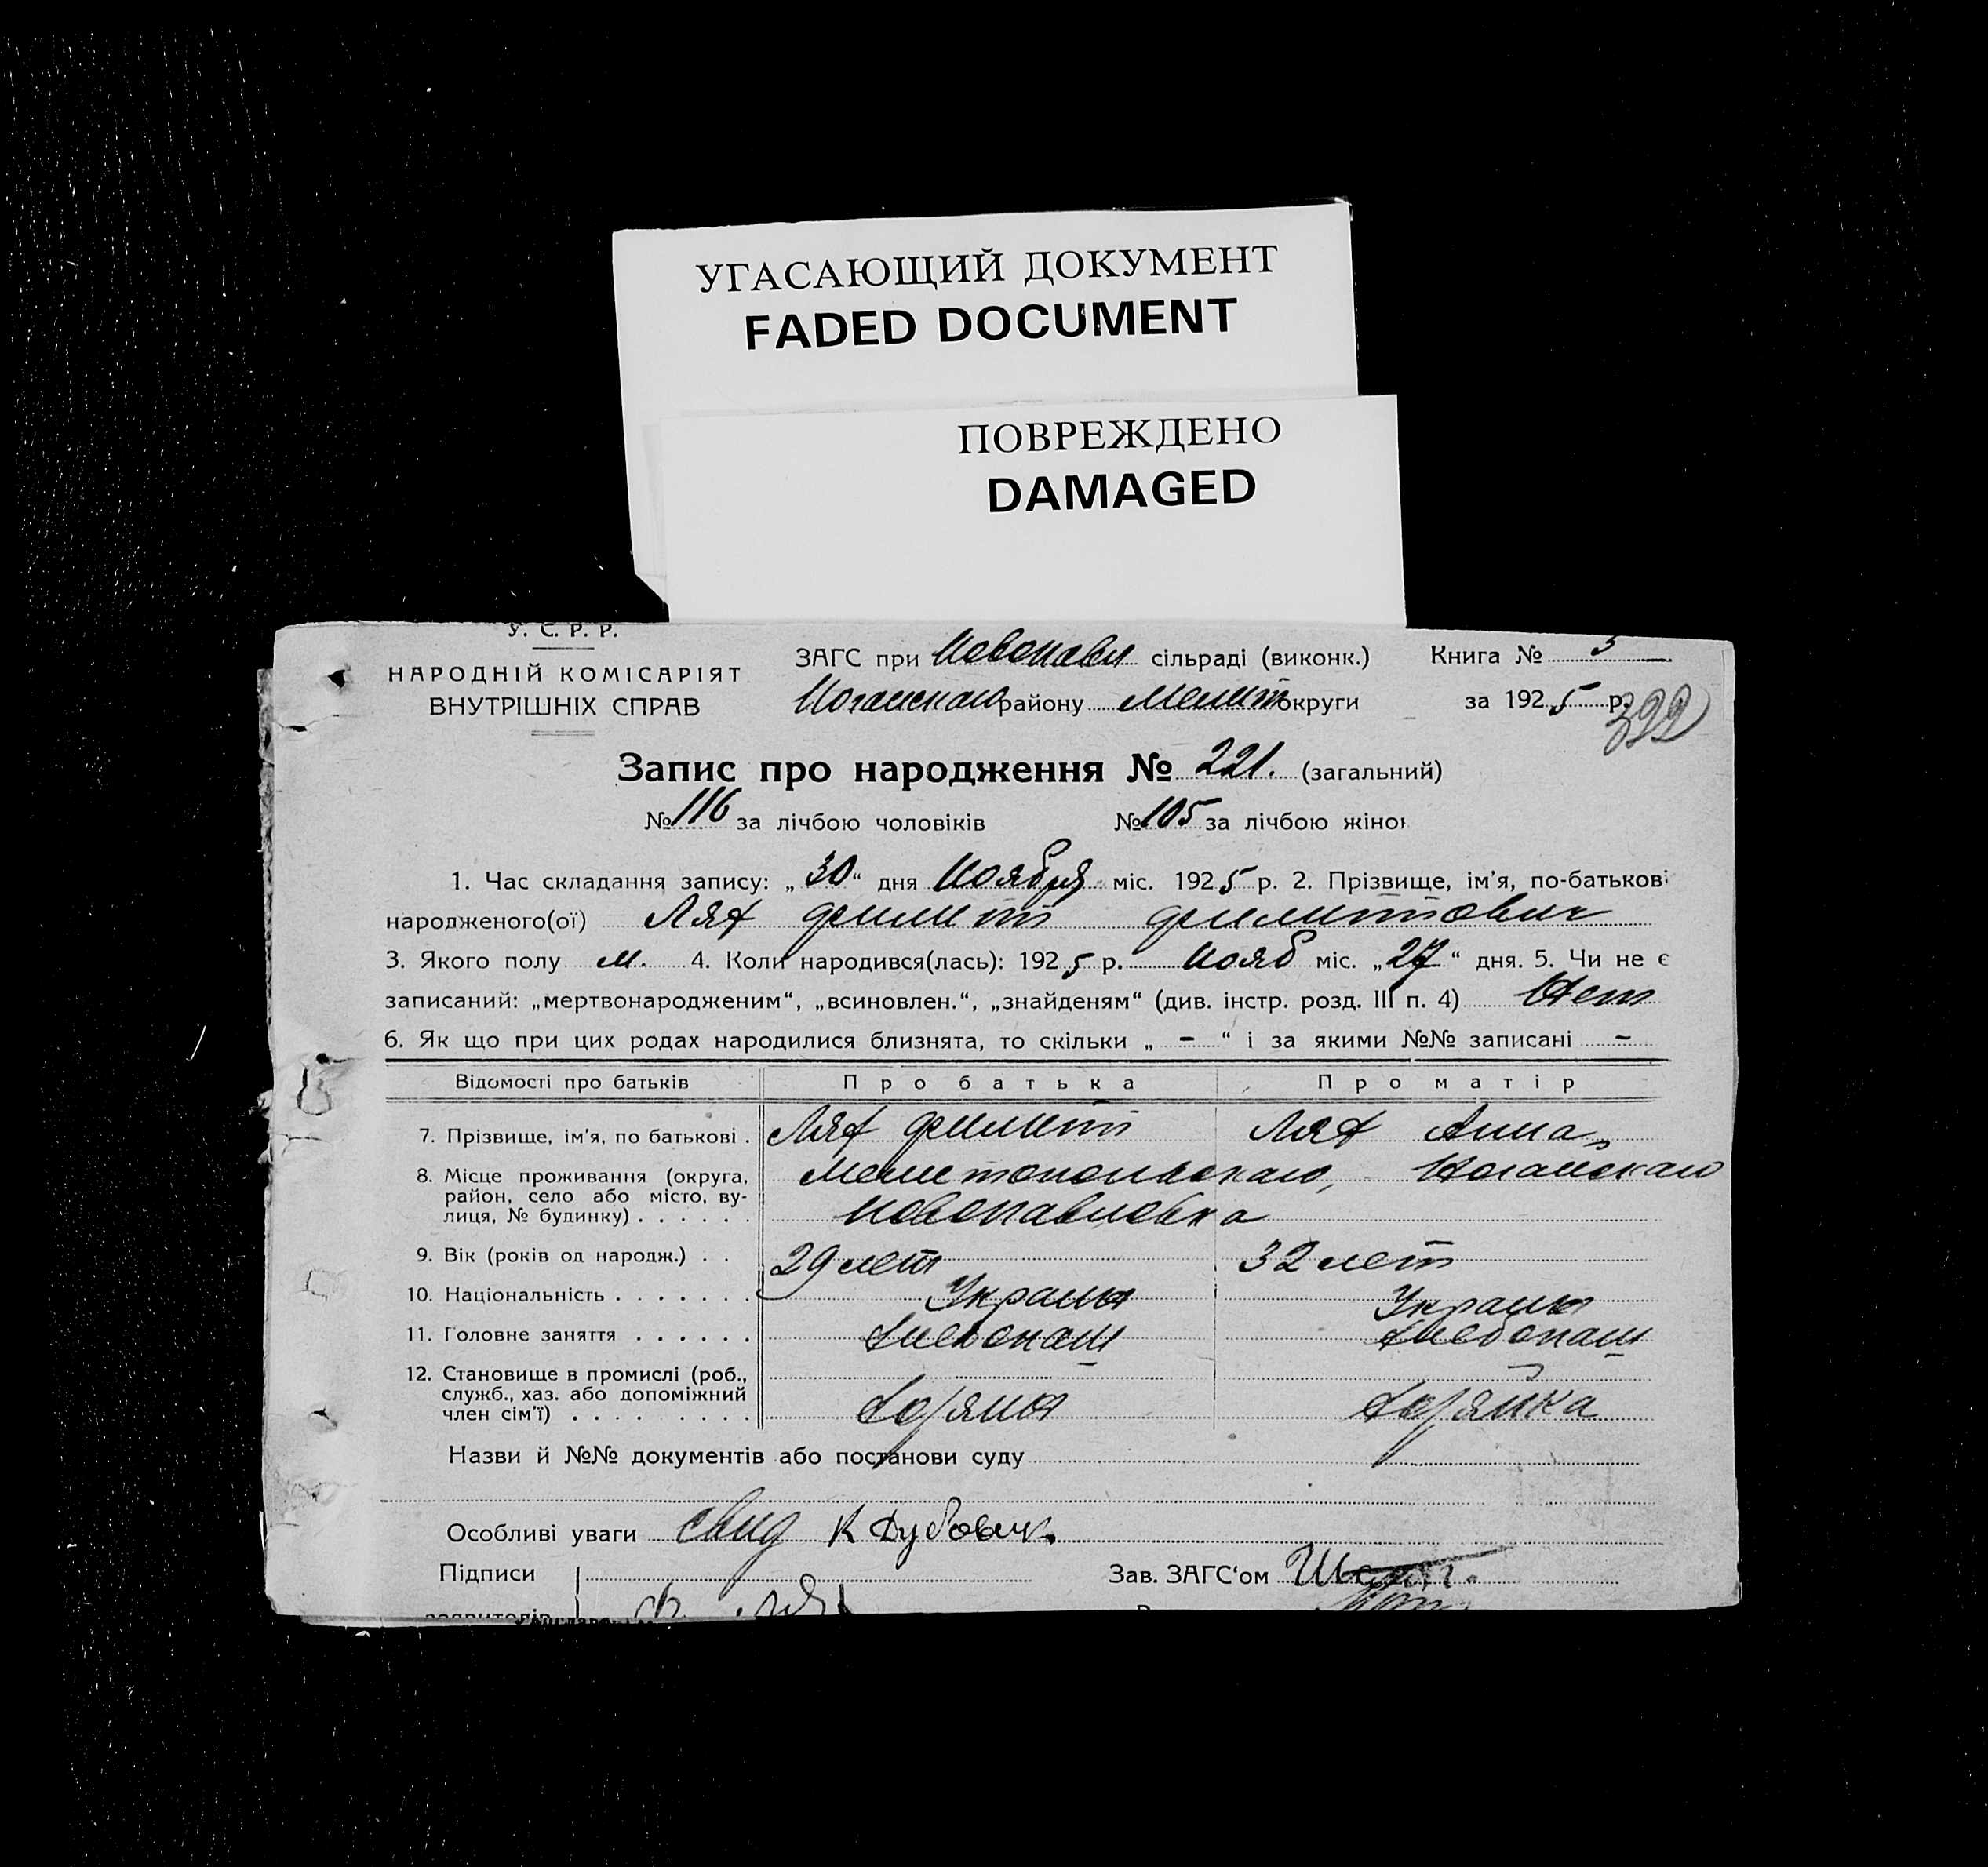 УГАСАЮЩИЙ ДОКУМЕНТ
FADED DOCUMENT
ПОВРЕЖДЕНО
DAMAGED
У. С. Р. Р.
НАРОДНІЙ КОМІСАРІЯТ
ВНУТРІШНІХ СПРАВ
ЗАГС при Новопавл сільраді (виконк.) Книга № 3
Ногайскаго району Мелит округи за 1925 р.
399
Запис про народження № 221. (загальний)
№ 116 за лічбою чоловіків № 105 за лічбою жінок
1. Час складання запису: „30“ дня Ноября міс. 1925 р. 2. Прізвище, ім'я, по-батькові
народженого(ої) Лях Филипп Филиппович
3. Якого полу м. 4. Коли народився(лась): 1925 р. Нояб міс. „27“ дня. 5. Чи не є
записаний: „мертвонародженим“, „всиновлен.“, „знайденям“ (див. інстр. розд. III п. 4) Нет
6. Як що при цих родах народилися близнята, то скільки „ - “ і за якими №№ записані -
Відомості про батьків Про батька Про матір
7. Прізвище, ім'я, по батькові . Лях Филипп Лях Анна
8. Місце проживання (округа, Мелитопольскаго, Ногайскаго
район, село або місто, ву-
лиця, № будинку) . . . . . . Новопавловка
9. Вік (років од народж.) . . 29 лет 32 лет
10. Національність . . . . . . . Украин Украин
11. Головне заняття . . . . . . Хлебопаш Хлебопаш
12. Становище в промислі (роб.,
служб., хаз. або допоміжний
член сім'ї) . . . . . . . . . Хозяин Хозяйка
Назви й №№ документів або постанови суду
Особливі уваги свид К Дубович
Підписи Зав. ЗАГС'ом
заявителів Лях